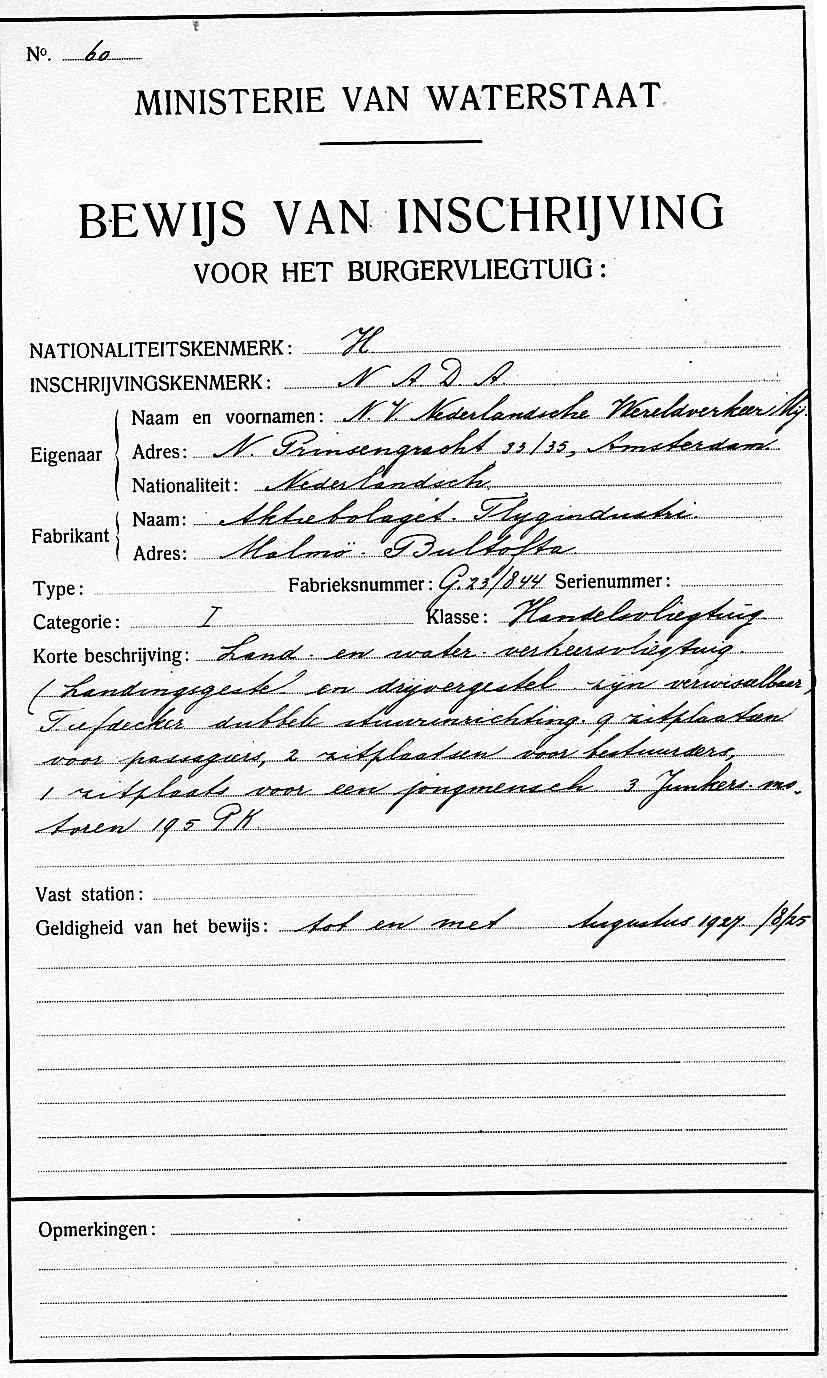 No. 60
MINISTERIE VAN WATERSTAAT
BEWIJS VAN INSCHRIJVING
VOOR HET BURGERVLIEGTUIG:
NATIONALITEITSKENMERK: H
INSCHRIJVINGSKENMERK: N A D A
Eigenaar
Naam en voornamen: N.V. Nederlandsche Wereldverkeer Mij.
Adres: N. Prinsengracht 33/35, Amsterdam
Nationaliteit: Nederlandsch
Fabrikant
Naam: Aktiebolaget. Flygindustri.
Adres: Malmö - Bultofta.
Type: Fabrieksnummer: G.23/844 Serienummer:
Categorie: I Klasse: Handelsvliegtuig
Korte beschrijving: Land- en water- verkeersvliegtuig.
(Landingsgestel en drijvergestel zijn verwisselbaar)
Tiefdecker dubbele stuurinrichting. 9 zitplaatsen
voor passagiers, 2 zitplaatsen voor bestuurders,
1 zitplaats voor een jongmensch 3 Junkers-mo-
toren 195 PK.
Vast station:
Geldigheid van het bewijs: tot en met Augustus 1927. /8/25
Opmerkingen: